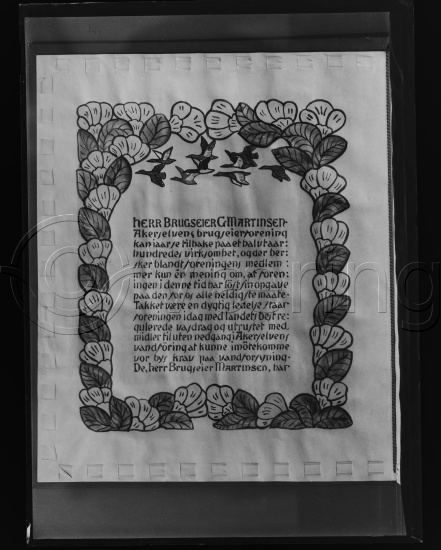 HERR BRUGSEIER G MARTINSEN-
Akerselvens brugseierforening
kan iaar se tilbake paa et halvt aar:
hundredes virksomhet, og der her:
sker blandt foreningens medlem:
mer kun én mening om, at foren:
ingen i denne tid har løst sin opgave
paa den for os alle heldigste maate-
Takket være en dygtig ledelse staar
foreningen idag med landets best re:
gulerede vasdrag og utrustet med
midler til uten nedgang i Akerselvens
vandføring at kunne imøtekomme
vor bys krav paa vandforsyning-
De, herr Brugseier MARTINSEN, har